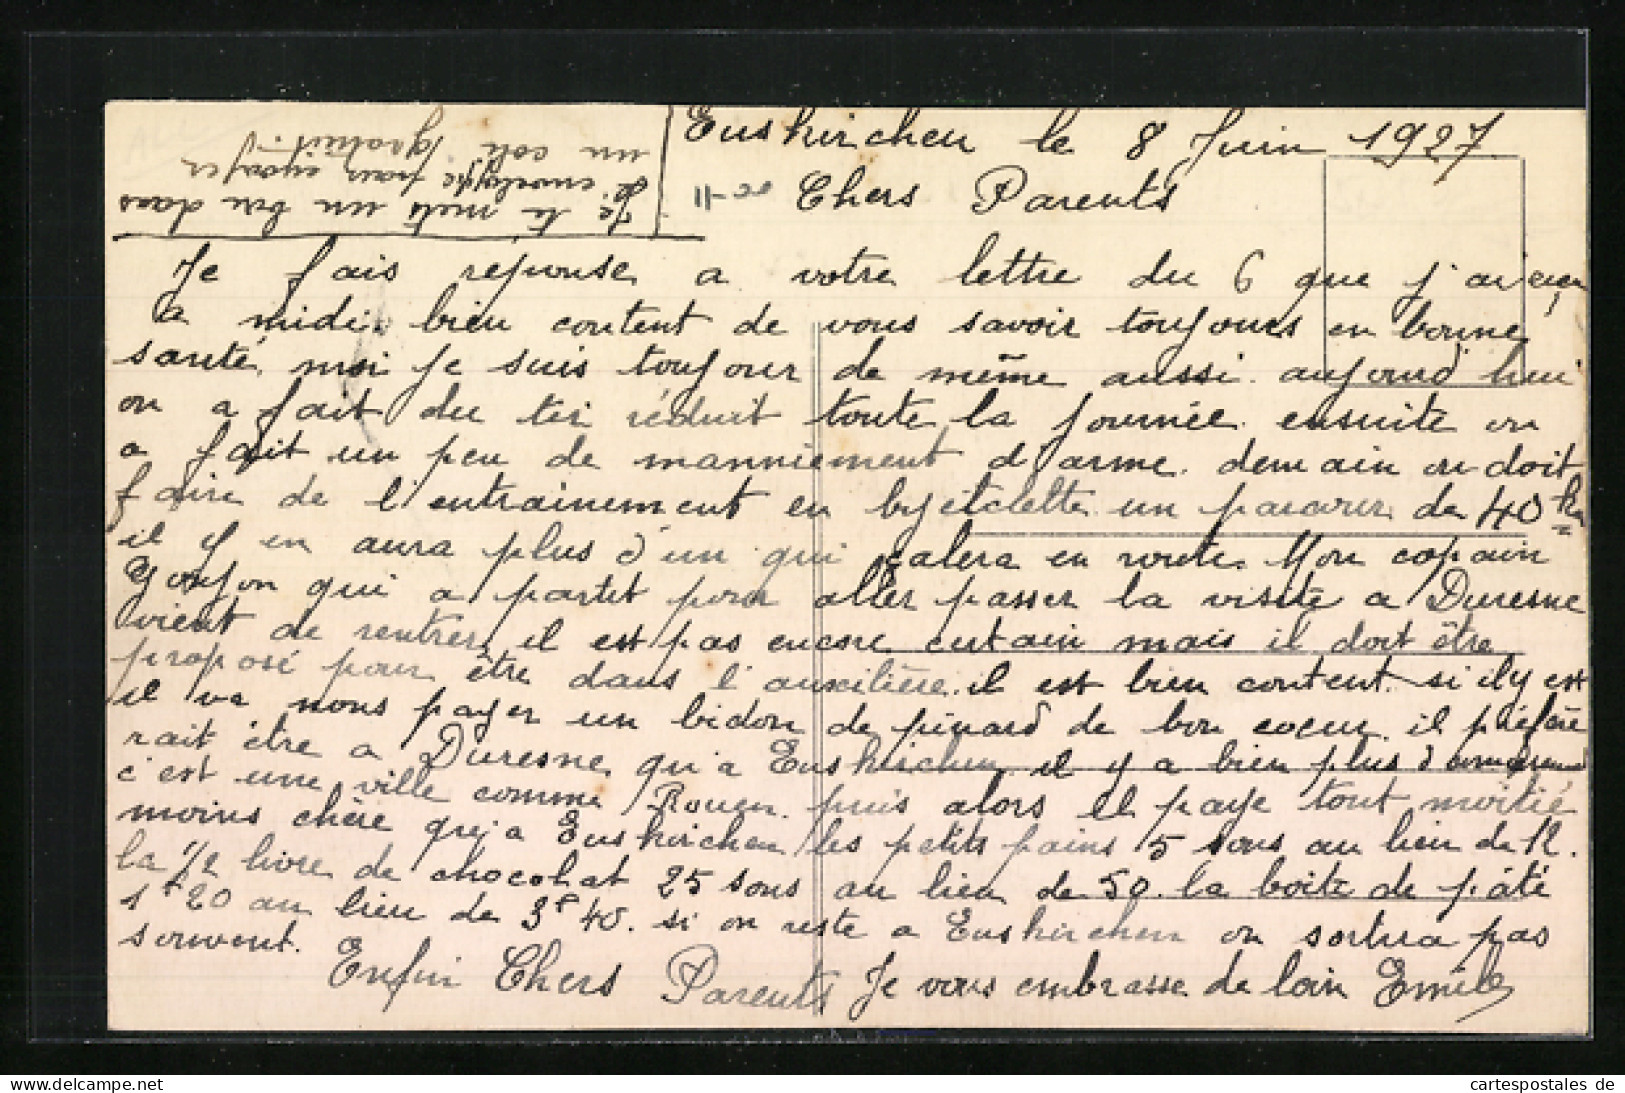 Euskirchen le 8 Juin 1927
Chers Parents
Je te mets un bon dans
l'enveloppe pour envoyer
un colis gratuit.
Je fais reponse a votre lettre du 6 que j'ai reçu
a midi. bien content de vous savoir toujours en bonne
santé, moi je suis toujour de même aussi. aujourd'hui
on a fait du tir réduit toute la journée. ensuite on
a fait un peu de manniement d'arme. demain on doit
faire de l'entrainement en byciclette un parcour de 40 km
il y en aura plus d'un qui calera en route. Mon copain
Goujon qui a partit pour aller passer la visite a Duresne
vient de rentrer, il est pas encore certain mais il doit être
proposé pour être dans l'auxilière. il est bien content. si il y est
il va nous payer un bidon de pinard de bon coeur. il préfère
rait être a Duresne qu'a Euskirchen. il y a bien plus d'
c'est une ville comme Rouen. puis alors il paye tout moitié
moins chère qu'a Euskirchen les petits pains 5 sous au lieu de 12.
la 1/2 livre de chocolat 25 sous au lieu de 50. la boite de pâté
1f 20 au lieu de 3f 40. si on reste a Euskirchen on sortira pas
souvent.
Enfin Chers Parents Je vous embrasse de loin Emile
www.cartes-postales-anciennes.info
cartespostales de